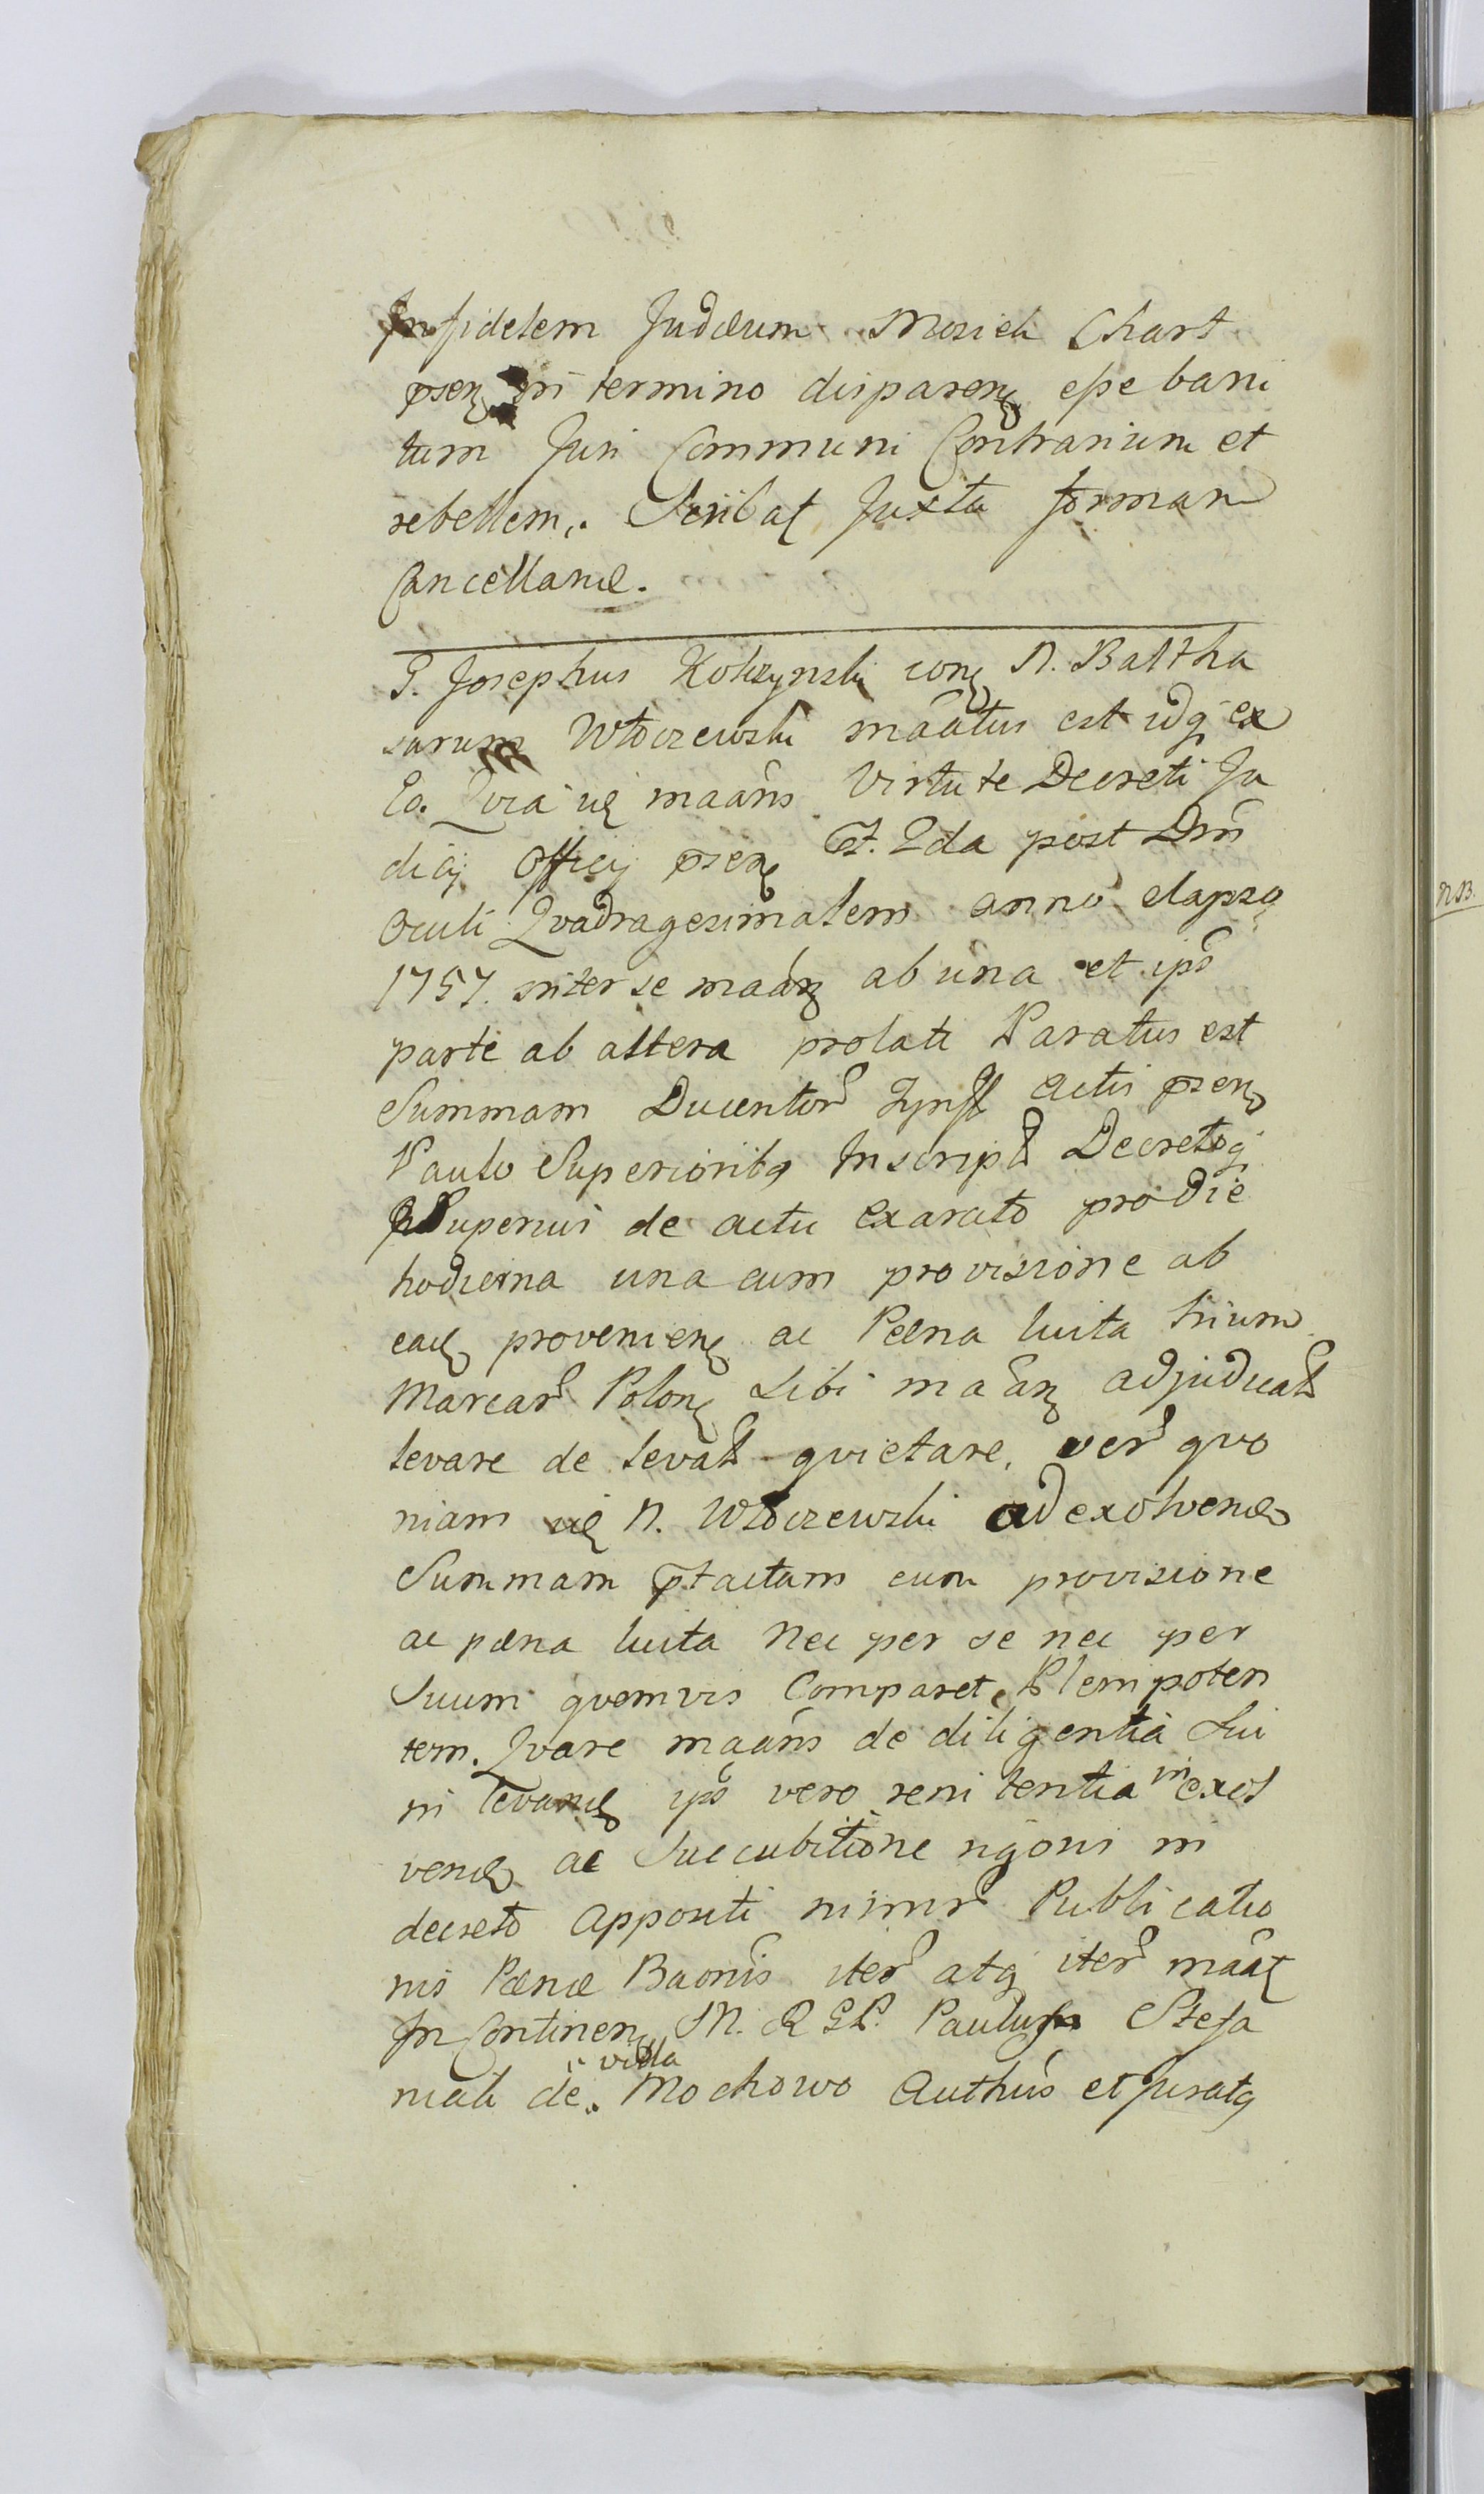 Infidelem Judæum Mosiek Chart
psen in termino disparen esse bani
tum Juri Communi Contrarium et
rebellem. Scribat Juxta forman
Cancellariæ.
P. Josephus Kolczynski con N. Baltha
sarum Włoczewski mãatus est idq ex
Eo. Qvia is maãns Virtute Decreti Ju
dicij Officij psen F. 2da post Dnm
Oculi Qvadragesimalem anno elapso
1757. inter se maãn ab una et ipo
parte ab altera prolati Paratus est
Summam Ducentor Tynff actis psen
Paulo Superioribq Inscript Decretoq
Superius de actu exarato pro die
hodierna una cum provisione ab
ead provenien ac Pæna luita trium
Marcar Polon Sibi maãn adjudicat
levare de levat qvietare, ver qvo
niam is N. Włoczewski ad exolvend
Summam ptactam cum provisione
ac pæna luita nec per se nec per
Suum qvemvis Comparet Plenipoten
tem. Qvare maãns de diligentia Sui
in levand ipo vero renitentia in exol
vend ac Succubitione rigoris in
decreto appositi nimir Publicatio
nis Pænæ Baonis iter atq iter mãat
In Continen M. R GR. Paulus Stefa
niak de villa Mochowo Authus et Juratq
n.B.